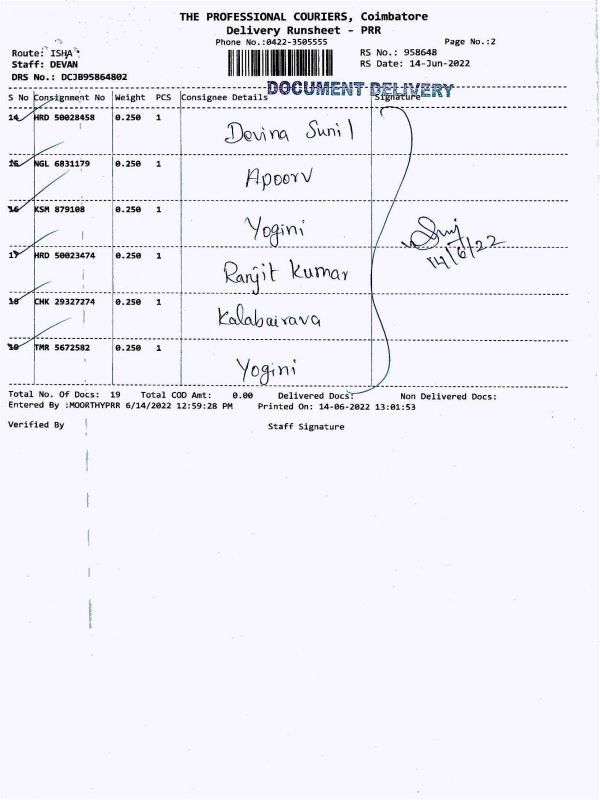 THE PROFESSIONAL COURIERS, Coimbatore
Delivery Runsheet - PRR
Phone No.:0422-3505555 Page No.:2
Route: ISHA RS No.: 958648
Staff: DEVAN RS Date: 14-Jun-2022
DRS No.: DCJB95864802
DOCUMENT DELIVERY
S No Consignment No Weight PCS Consignee Details Signature
14 HRD 50028458 0.250 1 Devina Sunil
15 NGL 6831179 0.250 1 Apoorv
16 KSM 879108 0.250 1 Yogini
17 HRD 50023474 0.250 1 Ranjit Kumar
14/6/22
18 CHK 29327274 0.250 1 Kalabairava
19 TMR 5672582 0.250 1 Yogini
Total No. Of Docs: 19 Total COD Amt: 0.00 Delivered Docs: Non Delivered Docs:
Entered By :MOORTHYPRR 6/14/2022 12:59:28 PM Printed On: 14-06-2022 13:01:53
Verified By Staff Signature